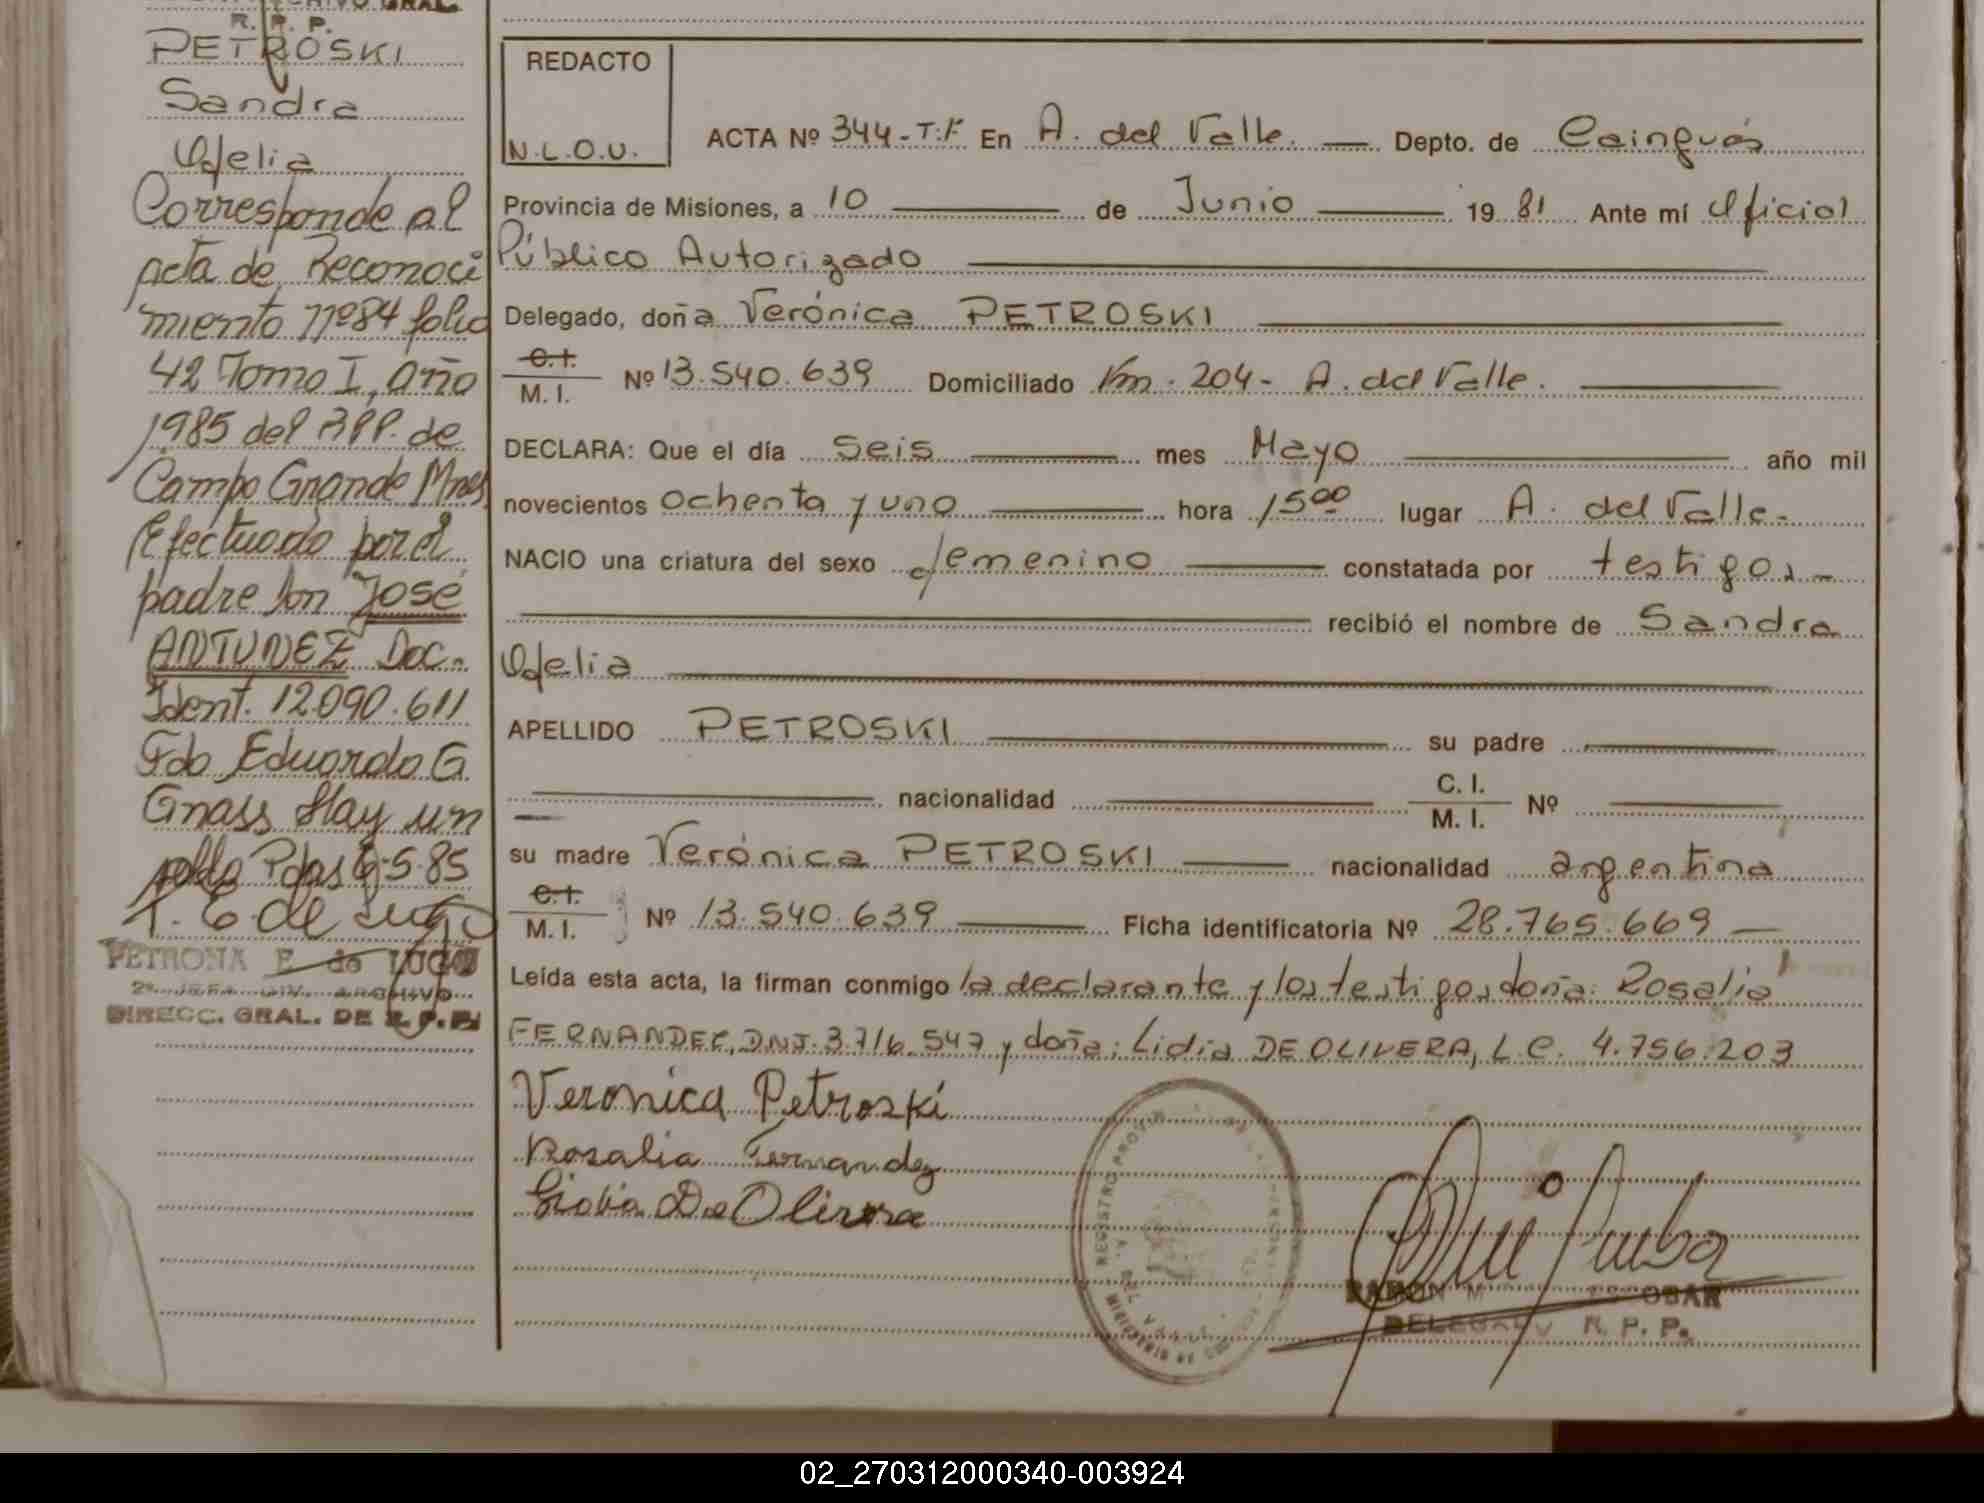 R. P. P.
PETROSKI
Sandra
Ofelia
Corresponde al
acta de Reconoci
miento Nº84 folio
42 Tomo I, año
1985 del RPP. de
Campo Grande Mnes
Efectuado por el
padre Don José
ANTUNEZ Doc.
Ident. 12.090.611
Fdo Eduardo G
Gnass Hay un
sello Pdas 6-5-85
PETRONA E. de LUGO
2ª JEFA DIV. ARCHIVO
DIRECC. GRAL. DE R.P.P.
REDACTO
N.L.O.U.
ACTA Nº 344-T:F En A. del Valle. — Depto. de Cainguás
Provincia de Misiones, a 10 — de Junio — 19 81 Ante mí Oficial
Público Autorizado —
Delegado, doña Verónica PETROSKI —
C.I.
M. I. Nº 13.540.639 Domiciliado Km. 204- A. del Valle. —
DECLARA: Que el día seis — mes Mayo — año mil
novecientos ochenta y uno — hora 15 00 lugar A. del Valle.-
NACIO una criatura del sexo femenino — constatada por testigos.-
— recibió el nombre de Sandra
Ofelia —
APELLIDO PETROSKI — su padre —
— nacionalidad — C. I.
M. I. Nº —
su madre Verónica PETROSKI — nacionalidad argentina
C.I.
M. I. Nº 13.540.639 — Ficha identificatoria Nº 28.765.669 —
Leída esta acta, la firman conmigo la declarante y los testigos doña: Rosalia
FERNANDEZ, DNI. 3.716.547 y doña: Lidia DE OLIVERA, L.C. 4.756.203
Veronica Petroski
Rosalia Fernandez
Lidia De Olivera
REGISTRO PROVIN
DEL VALLE
RAMON M ESCOBAR
DELEGADO R. P. P.
02_270312000340-003924